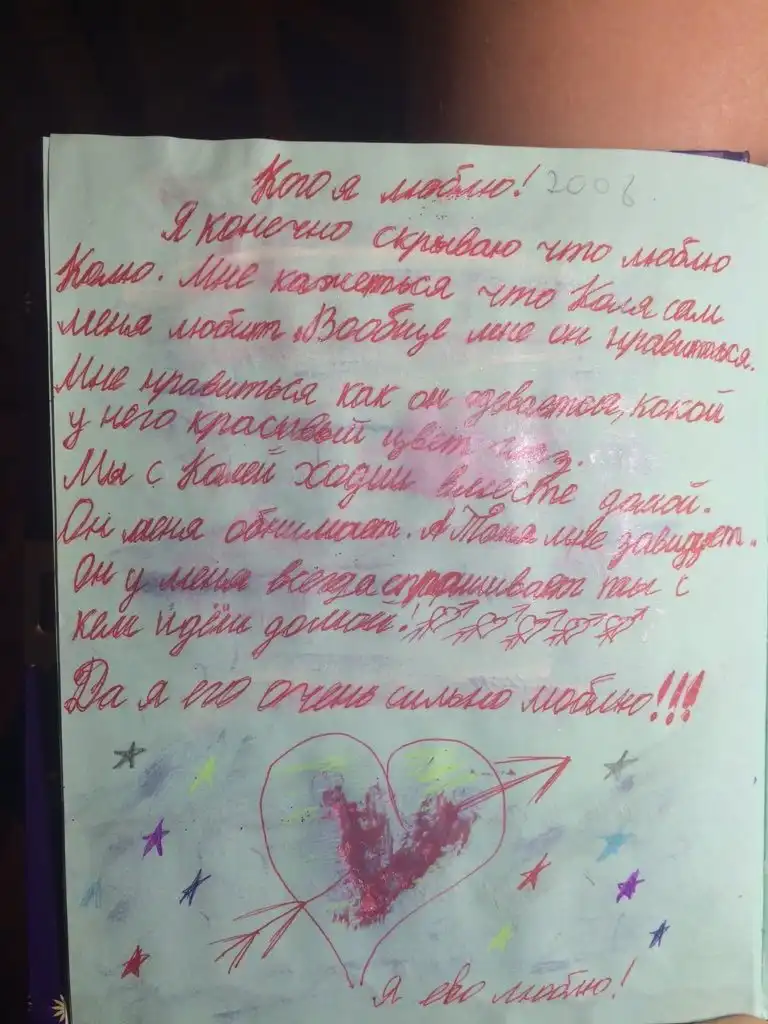 Кого я люблю! 2008
Я конечно скрываю что люблю
Колю. Мне кажеться что Коля сам
меня любит. Вообще мне он нравиться.
Мне нравиться как он одевается, какой
у него красивый цвет глаз.
Мы с Колей ходим вместе домой.
Он меня обнимает. А Таня мне завидует.
Он у меня всегда спрашивает ты с
кем идёш домой!
Да я его очень сильно люблю!!!
Я ево люблю!